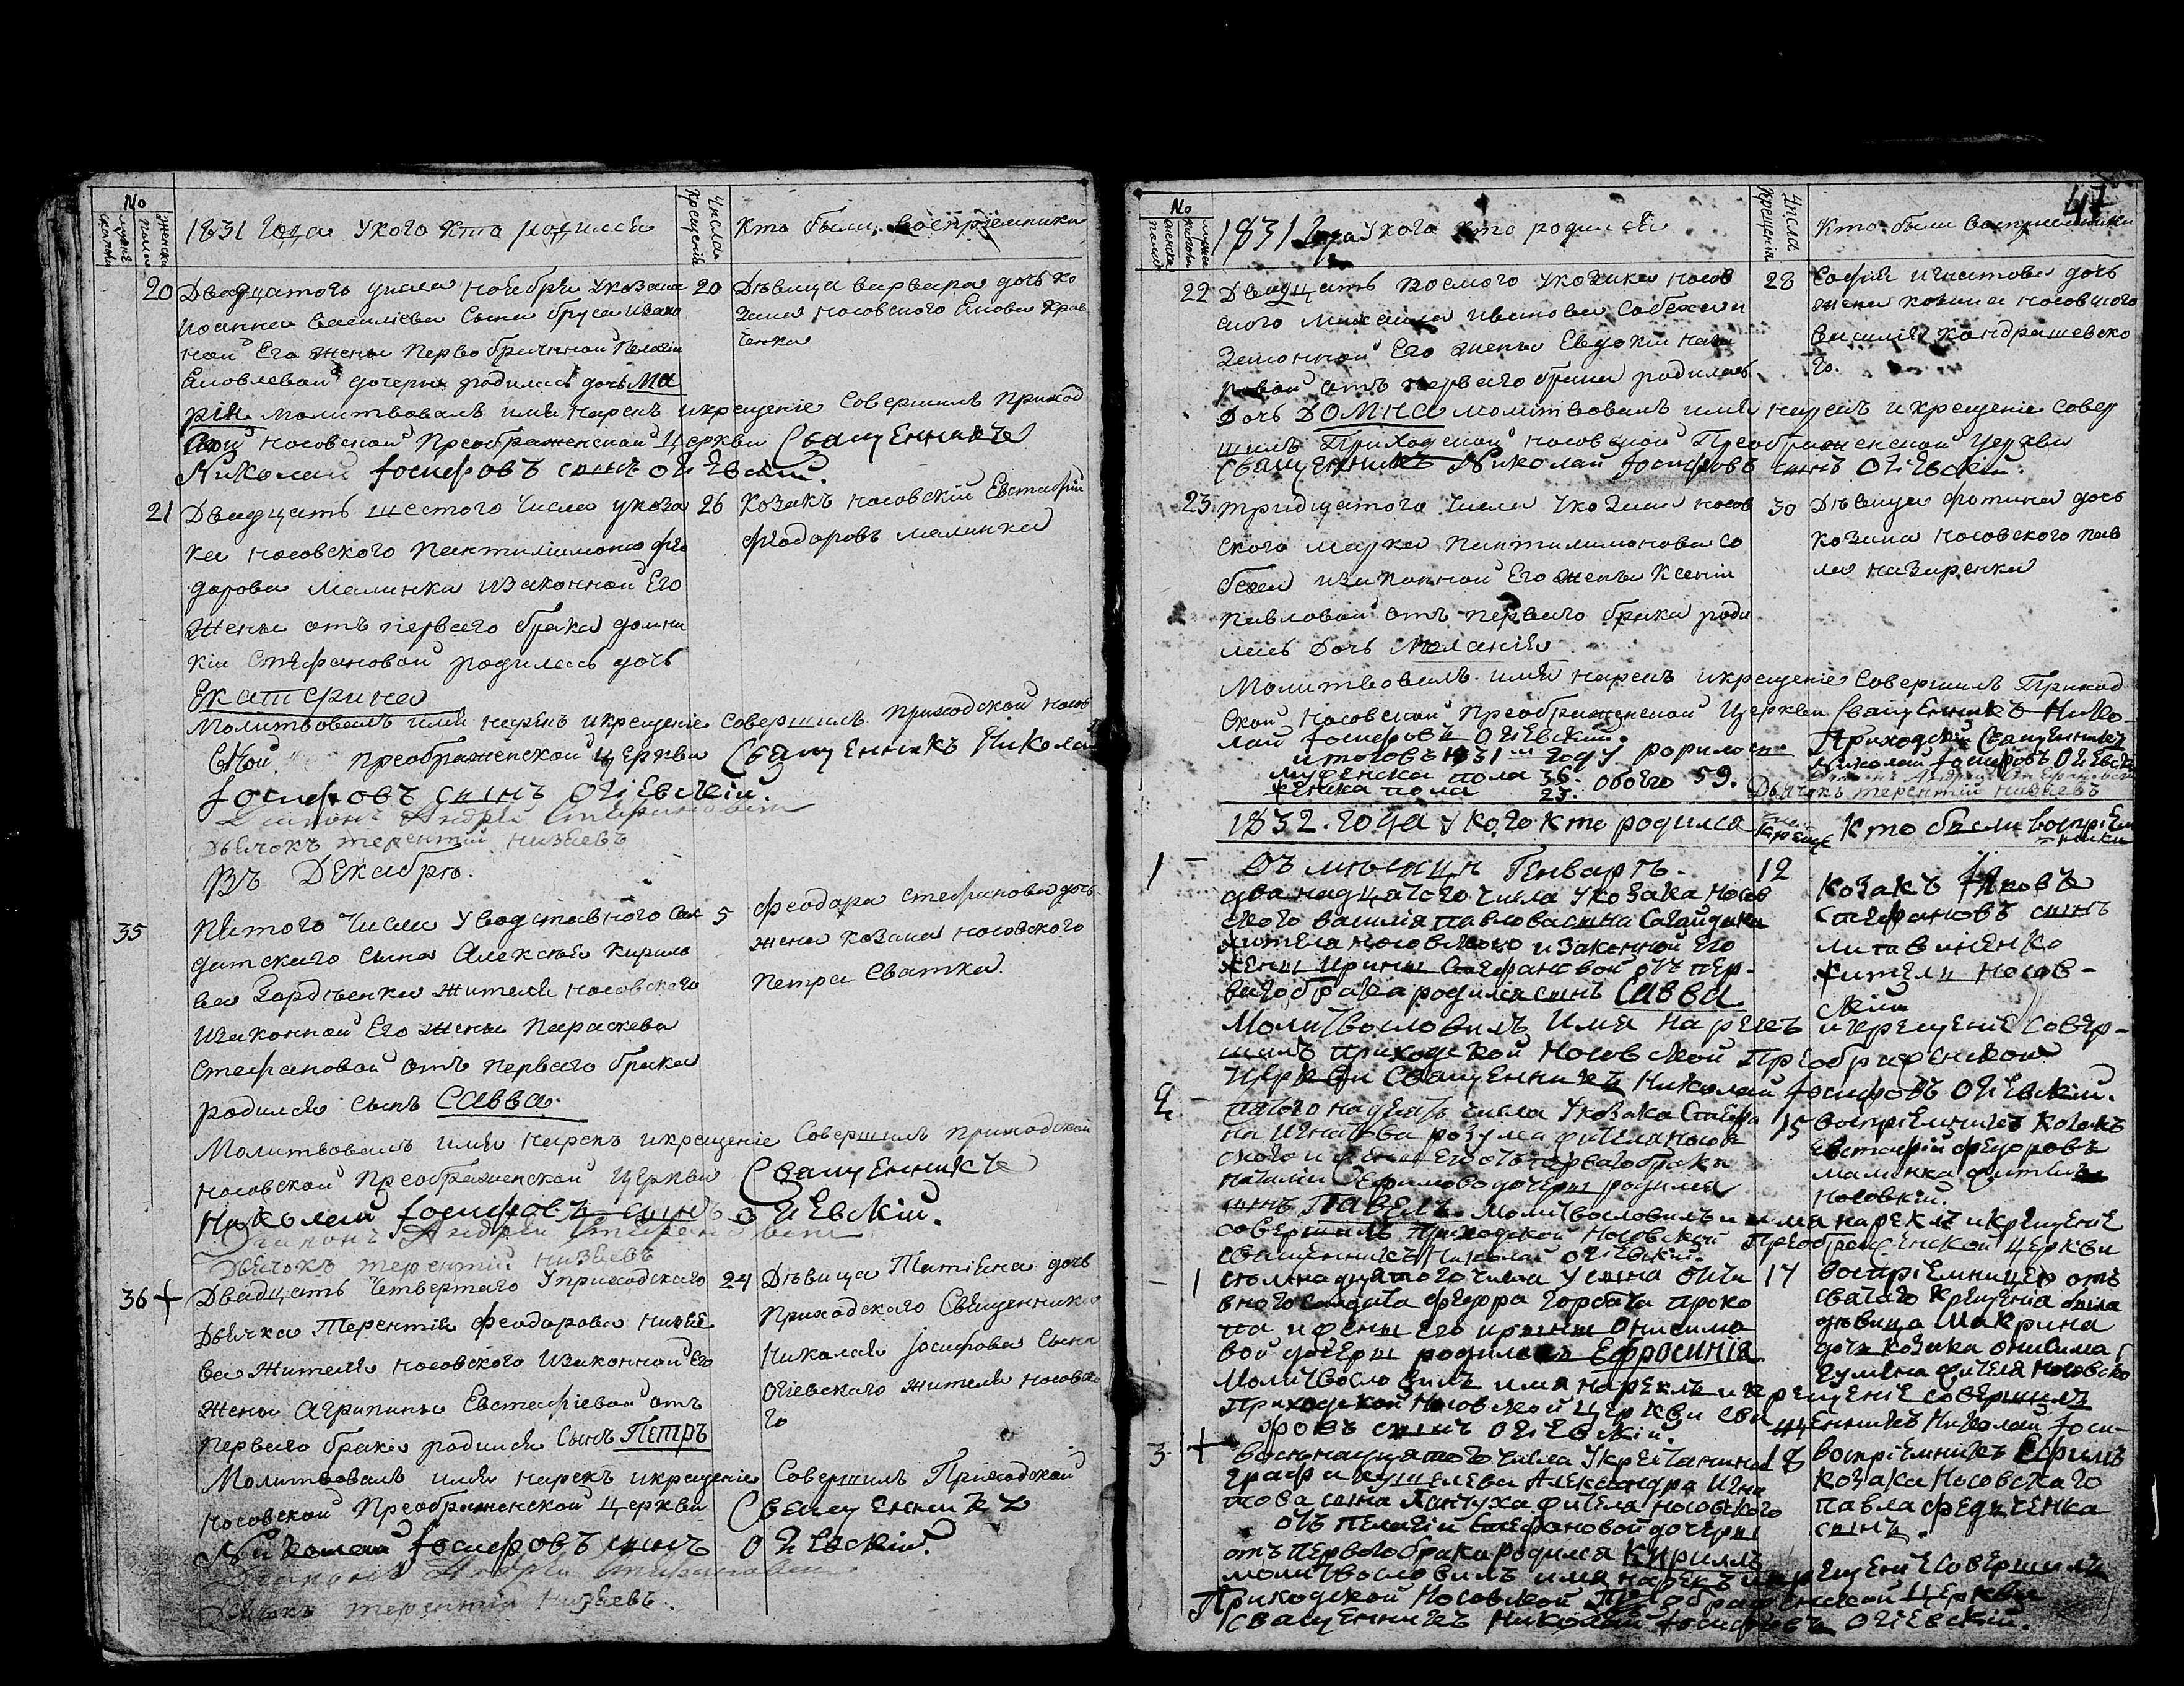 No
1831 года У кого кто родился
Числа Крещенія
Кто были воспріемники
20 Двадцатого числа ноебря у козака
Иоанна Василіева сына Бруса изако
ной Его жены Первобрачнной Пелагіи
Яковлевой дочери родилась дочь Ма
рія Молитвовалъ имя нарекъ икрещеніе Совершилъ Приход
ской Носовской Преображенской Церкви Священникъ
Николай Іосифовъ сынъ Огіевскій.
20 Дѣвица варвара дочь ко
зака Носовского Якова Крав
ченка
21 Двадцать шестого Числа укоза
ка Носовского Пантилимона Фео
дорова Малинка изаконной Его
жены отъ первого брака Домни
кіи Стефановой родилась дочь
Екатерина
Молитвовалъ имя нарекъ икрещеніе совершилъ приходской Носов
ской Преображенской Церкви Священникъ Николай
Іосифовъ сынъ Огіевскій.
26 Козакъ Носовскій Евстафій
Феодоровъ малинка
Діаконъ Андрей Стефановичъ
Дьячокъ терентій низѣевъ
Въ Декабрѣ.
35 Пятого Числа У водставного Сол
датского сына Алексѣя Кирило
ва Гордѣенка жителя носовского
изаконной Его жены Параскева
Стефановой отъ первого брака
родился сынъ Савва.
Молитвовалъ имя нарекъ икрещеніе Совершилъ Приходской
Носовской Преображенской Церкви Священникъ
Николай Іосифовъ сынъ Огіевскій.
5 Феодора Стефанова дочь
жена козака носовского
Петра Сватка.
Діаконъ Андрей Стефановичъ
Дьячокъ терентій низѣевъ
36 + Двадцать Четвертаго У приходского
Дьячка Терентія Феодорова низѣе
ва жителя носовского изаконной Его
жены Агрипины Евстафіевой отъ
первого брака родился сынъ Петръ
Молитвовалъ имя нарекъ икрещеніе Совершилъ Приходской
Носовской Преображенской Церкви Священникъ
Николай Іосифовъ сынъ Огіевскій.
24 Дѣвица Татіяна дочь
Приходского Священника
Николая Іосифова Сына
Огіевского жителя носовско
го
Діаконъ Андрей Стефановичъ
Дьячокъ терентій низѣевъ.
47
No
1831 года У кого кто родился
Числа Крещенія
Кто были воспріемники
22 Двадцать восмого укозака носов
ского Михаила Иванова Собека и
Законной Его жены Евдокіи
отъ перваго брака родилась
Дочь Домна молитвовалъ имя нарекъ и крещеніе совер
шилъ Приходской носовской Преображенской Церкви
Священникъ Николай Іосифовъ сынъ Огіевскій.
28 Софія Игнатова дочь
жена козака носовского
Василія Кондрашевско
го.
23 тридцятого Числа укозака носов
ского марка Пантилимонова Со
бека изаконной Его жены Ксеніи
Павловой отъ первого брака роди
лась Дочь Меланія
Молитвовалъ имя нарекъ икрещеніе Совершилъ Приход
ской носовской Преображенской Церкви Священникъ Нико
лай Іосифовъ Огіевскій.
30 Дѣвица Фотина дочь
козака носовского Пав
ла назаренка
итогов 1831 году родилось
мужеска пола 36. обоего 59.
женска пола 23.
Приходскій Священникъ
Николай Іосифовъ Огіевскій
Діаконъ Андрей Стефановичъ
Дьячокъ терентій низѣевъ
1832. года У кого кто родился
Числа Креще
Кто были воспріем
ники
1 Въ мѣсяцѣ Генварѣ.
дванадцятого числа У козака носов
ского василія павлова сына Сагайдака
жителя носовского изаконной Его
жены ирины Стефановой отъ пер-
ваго брака родился сынъ Савва
Молитвословилъ имя нарекъ икрещеніе совер-
шилъ приходской Носовской Преображенской
церкви Священникъ Николай Іосифовъ Огіевскій.
12 Козакъ Яковъ
Стефановъ сынъ
литвиненко
житель носов-
скій
2 пятого надцять числа Укозака Стефа
на Игнатова розума жителя носов
ского и жены Его отъ перваго брака
наталіи Ефимово дочери родился
сынъ Павелъ. молитвословилъ и имя нареклъ икрещеніе
совершилъ Приходской Носовской Преображенской церкви
священникъ Николай Огіевскій.
15 воспріемникъ козакъ
Евстафій Федоровъ
малинка житель
носовскій.
1 седмнадцятого числа У сына отста
вного солдата Федора Горбата проко
па и жены Его ирины Онисимо
вой дочери родилась Ефросинія
Молитвословилъ имя нареклъ и крещеніе совершилъ
приходской Носовской церкви священникъ Николай Іоси-
фовъ сынъ Огіевскій.
17 воспріемницею отъ
святаго Крещенія была
дѣвица Макрина
дочь козака Онисима
жителя носовско
3 + восьмнадцятого числа У крестьянина
графа кушелева Александра Игна
това сына Пантуха жителя носовского
отъ пелагіи Стефановой дочери
отъ первого брака родился Кириллъ
молитвословилъ имя нарекъ икрещеніе совершилъ
Приходской Носовской Преображенской церкви
священникъ Николай Іосифовъ Огіевскій.
18 воспріемникъ Ефимъ
козака Носовскаго
павла Федченка
сынъ.